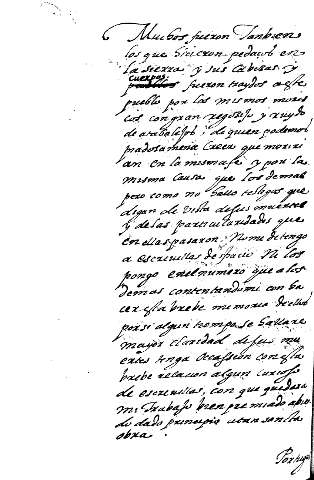 Muchos fueron Tambien
los que hicieron pedaços en
la sierra y sus cabeças y
cuerpos
fueron traydos a este
pueblo por los mismos moris
cos con gran regosijo y ruydo
de atabalejos de quien podemos
piadosamente Creer que morirí
an en la misma fe y por la
misma causa que los demas
pero como no hallo testigos que
digan de vista de sus muertes
y de las particularidades que
en ellas pasaron. No me detengo
a escrevillas despacio Ni los
pongo en el numero que a los
demas contentandomi con ha
cer esta brebe memoria dellos
por si algun tiempo se hallare
mayor claridad de sus mu
ertes tenga ocassion con esta
brebe relacion algun curioso
de escrevillas, con que quedara
mi Trabajo bien premiado abien
do dado principio a tan sancta
obra.